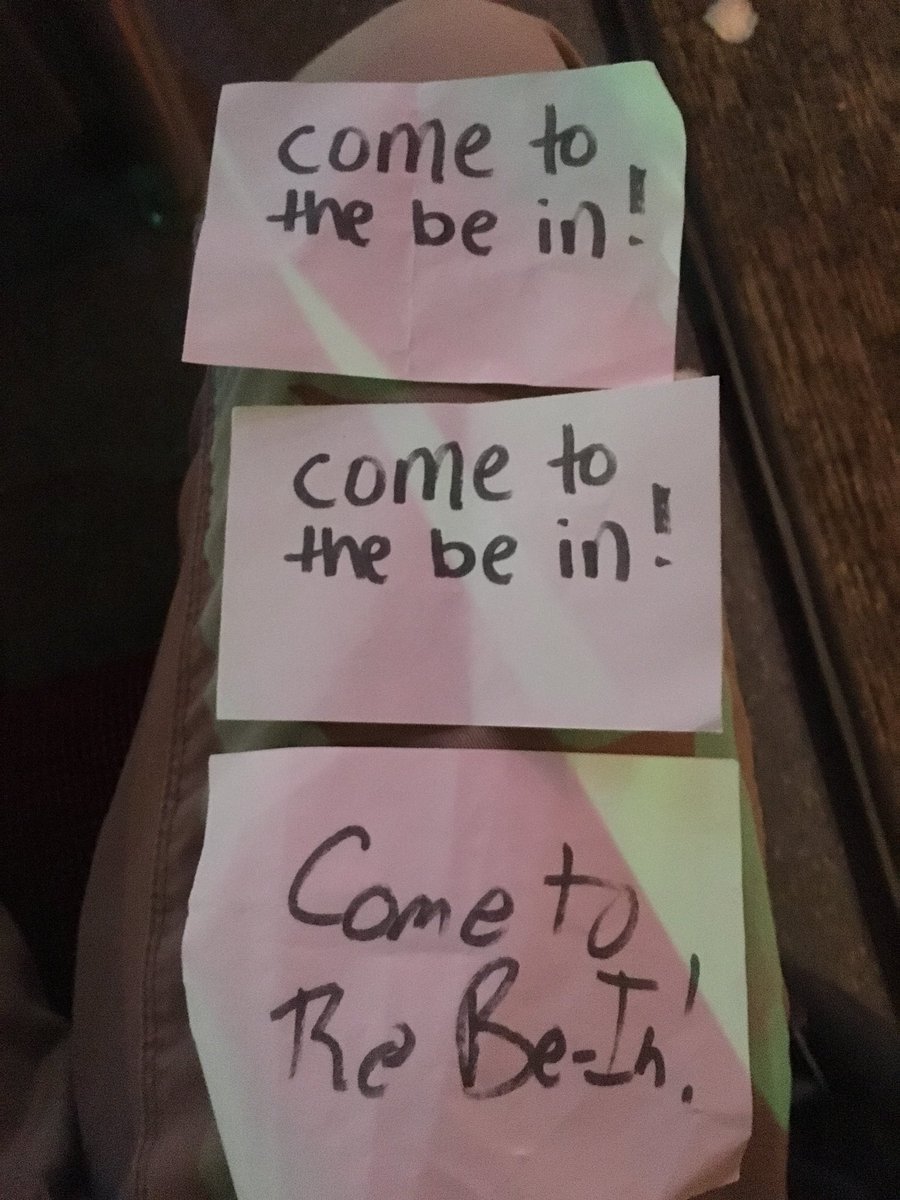 come to
the be in!
come to
the be in!
Come to
The Be-In!